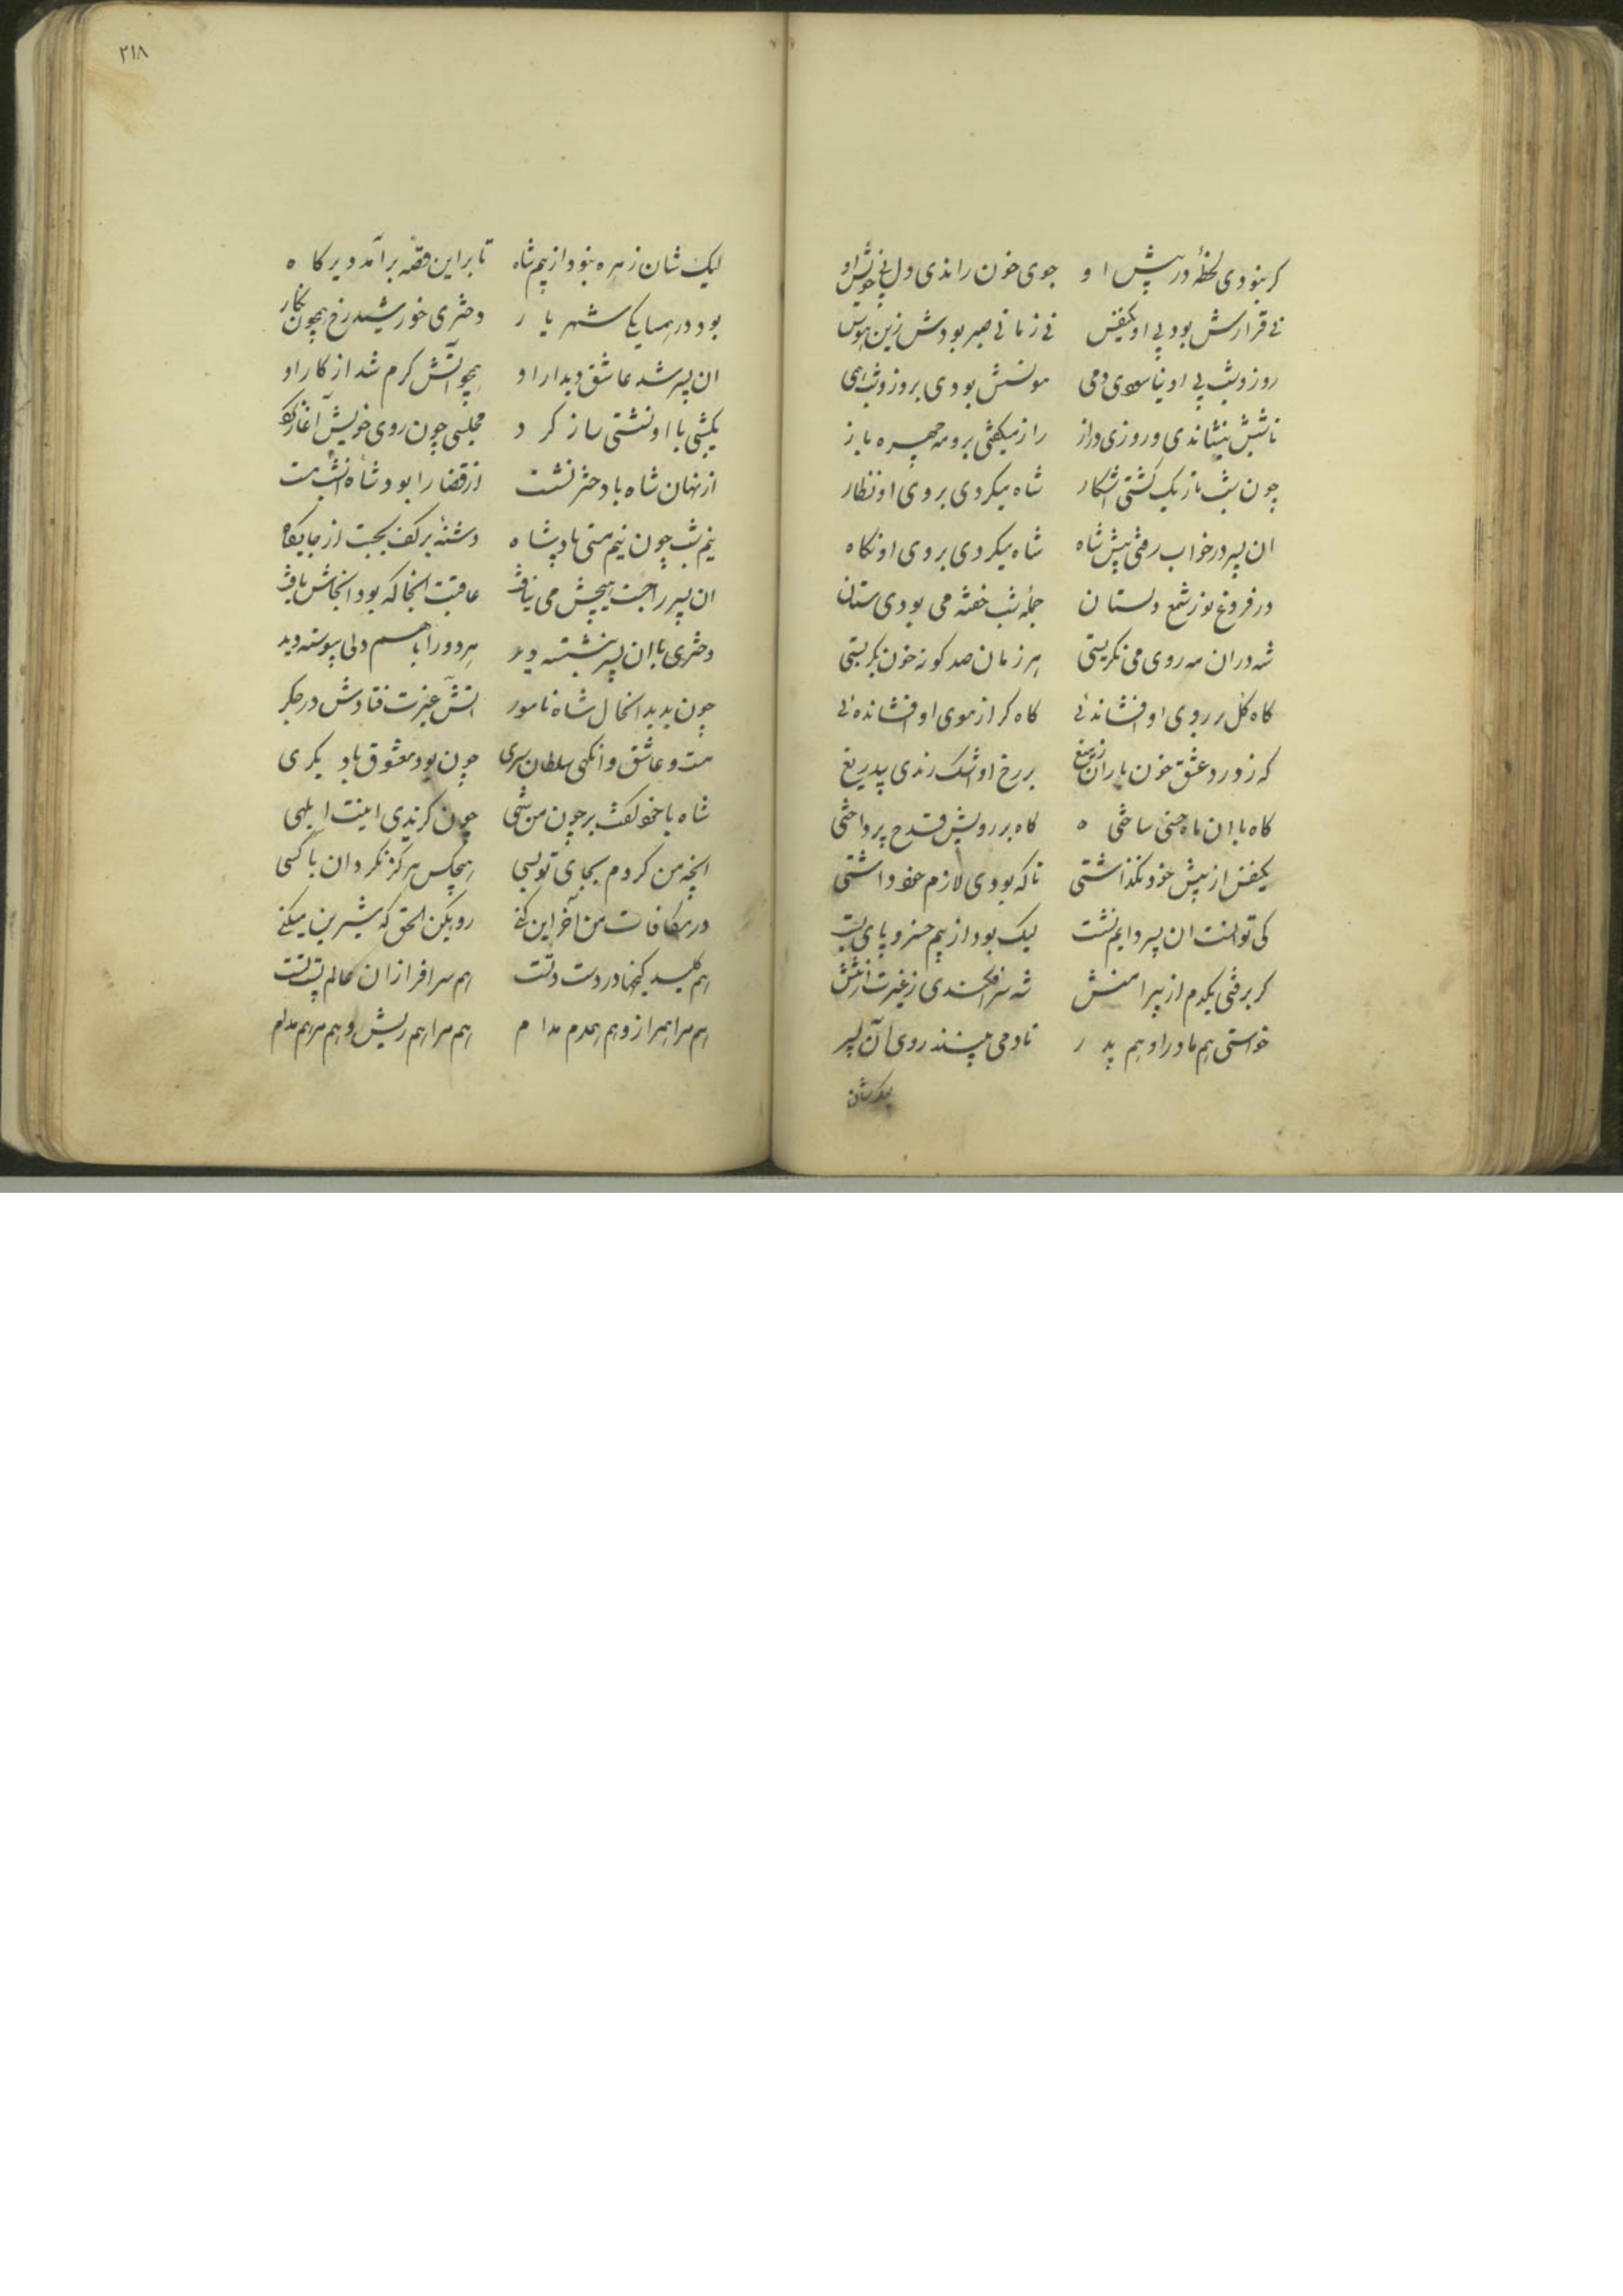 کر نبودی لحظهٔ در پیش ا و جوی خون راندی دل بی خویش او
نی قرارش بود بی او یکنفس نی زمانی صبر بودش زین هوس
روز و شب بی او نیاسودی دمی مونسش بودی بروز و شب همی
تا شبش بنشاندی و روزی دراز راز میکفتی برو مه چهره باز
چون شب تاریک کشتی اشکار شاه میکردی بروی او نظار
ان پسر در خواب رفتی پیش شاه شاه میکردی بروی او نکاه
در فروغ نور شمع دلستا ن جمله شب خفته می بودی ستان
شه دران مه روی می نکریستی هر زمان صد کونه خون بکریستی
کاه کل بر روی او افشاندئی کاه کرد از موی او افشانده ئی
که ز درد عشق خون باران ز میغ بر رخ او اشک راندی بیدریغ
کاه با ان ماه جشنی ساختی کاه بر رویش قدح پرداختی
یکنفس از پیش خود نکذاشتی تا که بودی لازم خود داشتی
کی توانست ان پسر دایم نشست لیک بود از بیم خسرو پای بست
کر برفتی یکدم از پیرامنش شه سر افکندی ز غیرت از تنش
خواستی هم مادر او هم پد ر تا دمی بینند روی آن پسر
لیک شان
لیک شان زهره نبود از بیم شاه تا بر این قصه برآمد دیر کا ه
بود در همسایک شهر یا ر دختری خورشید رخ همچون نکار
ان پسر شد عاشق دیدار او همچو آتش کرم شد از کار او
یکشبی با او نشستی ساز کر د مجلسی چون روی خویش آغاز کرد
از نهان شاه با دختر نشست از قضا را بود شاه انشب مست
نیم شب چون نیم مستی پادشا ه دشنهٔ بر کف بجست از جایکاه
ان پسر را جست هیچش می نیافت عاقبت انجا که بود انجاش یافت
دختری با ان پسر بنشسته دید هر دو را با هم دلی پیوسته دید
چون بدید انحال شاه نامور اتش غیرت فتادش در جکر
مست و عاشق وانکهی سلطان سری چون بود معشوق با دیکری
شاه با خود کفت بر چون من شهی چون کزیدی اینت ابلهی
انچه من کردم بجای تو بسی هیچکس هرکز نکرد ان با کسی
در مکافات من آخر این کنی رو بکن الحق که شیرین میکنی
هم کلید کنجها در دست تست هم سرافرازان عالم پست تست
هم مرا همراز و هم همدم مدا م هم مرا هم ریش و هم مرهم مدام
۲۱۸